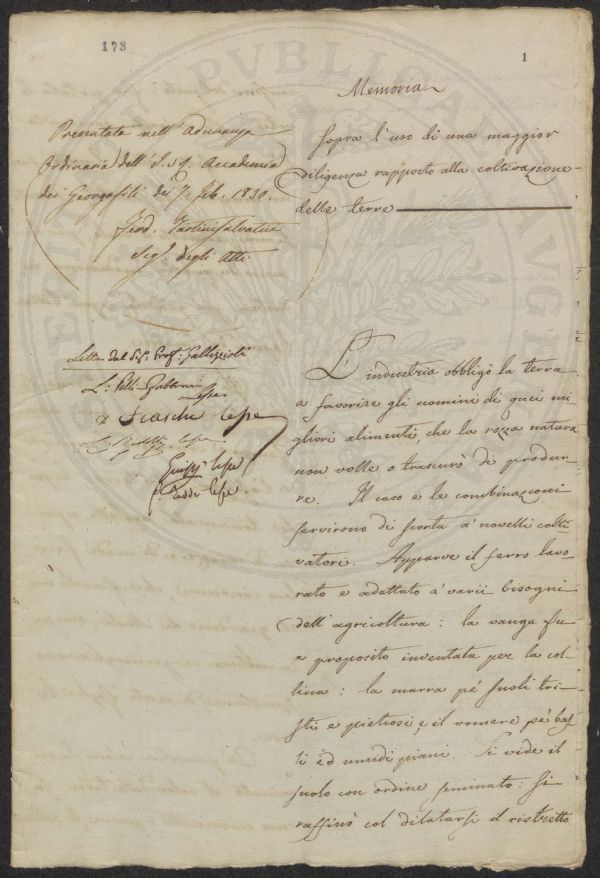 173
1
Memoria
Sopra l'uso di una maggior
diligenza rapporto alla coltivazione
delle terre
Presentata nell'Adunanza
Ordinaria dell'I. e R. Accademia
dei Georgofili de 7. Feb. 1830.
Ferd. Tartini Salvatici
Seg. degli Atti
Letta dal Sig. Prof. Gallizioli
L'industria obbligò la terra
a favorire gli uomini di quei mi
gliori alimenti, che la rozza natura
non volle o trascurò di produr-
re. Il caso e le combinazioni
servirono di scorta a' novelli colti
vatori. Apparve il ferro lavo-
rato e adattato a' varii bisogni
dell'agricoltura: la vanga fu
a proposito inventata per la col-
lina: la marra pé suoli tri-
sti e pietrosi, e il vomere pé bas
si ed umidi piani. Si vide il
suolo con ordine seminato: Si
raffinò col dilatarsi il ristretto